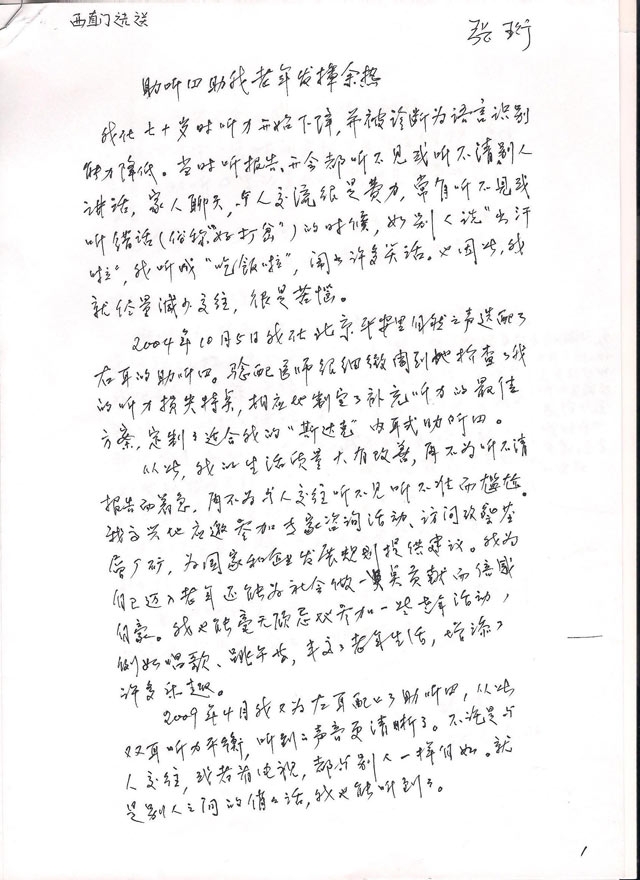 西直门诺诺
张珩
助听四助我老年发挥余热
我在七十岁时听力开始下降,并被诊断为语言识别
能力降低。当时听报告、开会都听不见或听不清别人
讲话,家人聊天,与人交流很是费力,常有听不见或
听错话(俗称"好打岔")的时候,如别人说"出汗
啦",我听成"吃饭啦",闹出许多笑话。也因此,我
就尽量减少交往,很是苦恼。
2004年10月5日我在北京平安里自然之声选配了
右耳的助听四。验配医师很细微周到地检查了我
的听力损失特点,相应地制定了补充听力的最佳
方案,定制了适合我的"斯达克"内耳式助听四。
从此,我的生活质量大有改善,再不为听不清
报告而着急,再不为与人交往听不见听不准而尴尬。
我高兴地应邀参加专家咨询活动、访问改造基
层厂矿,为国家和企业发展规划提供建议。我为
自己迈入老年还能为社会做一点贡献而倍感
自豪。我也能毫无顾忌地参加一些老年活动,
例如唱歌、跳午等,丰文了老年生活,增添了
许多乐趣。
2009年4月我又为左耳配上了助听四,从此
双耳听力平衡,听到的声音更清晰了。不论是与
人交往,或者看电视,都与别人一样自如。就
是别人之间的悄悄话,我也能听到了。
1